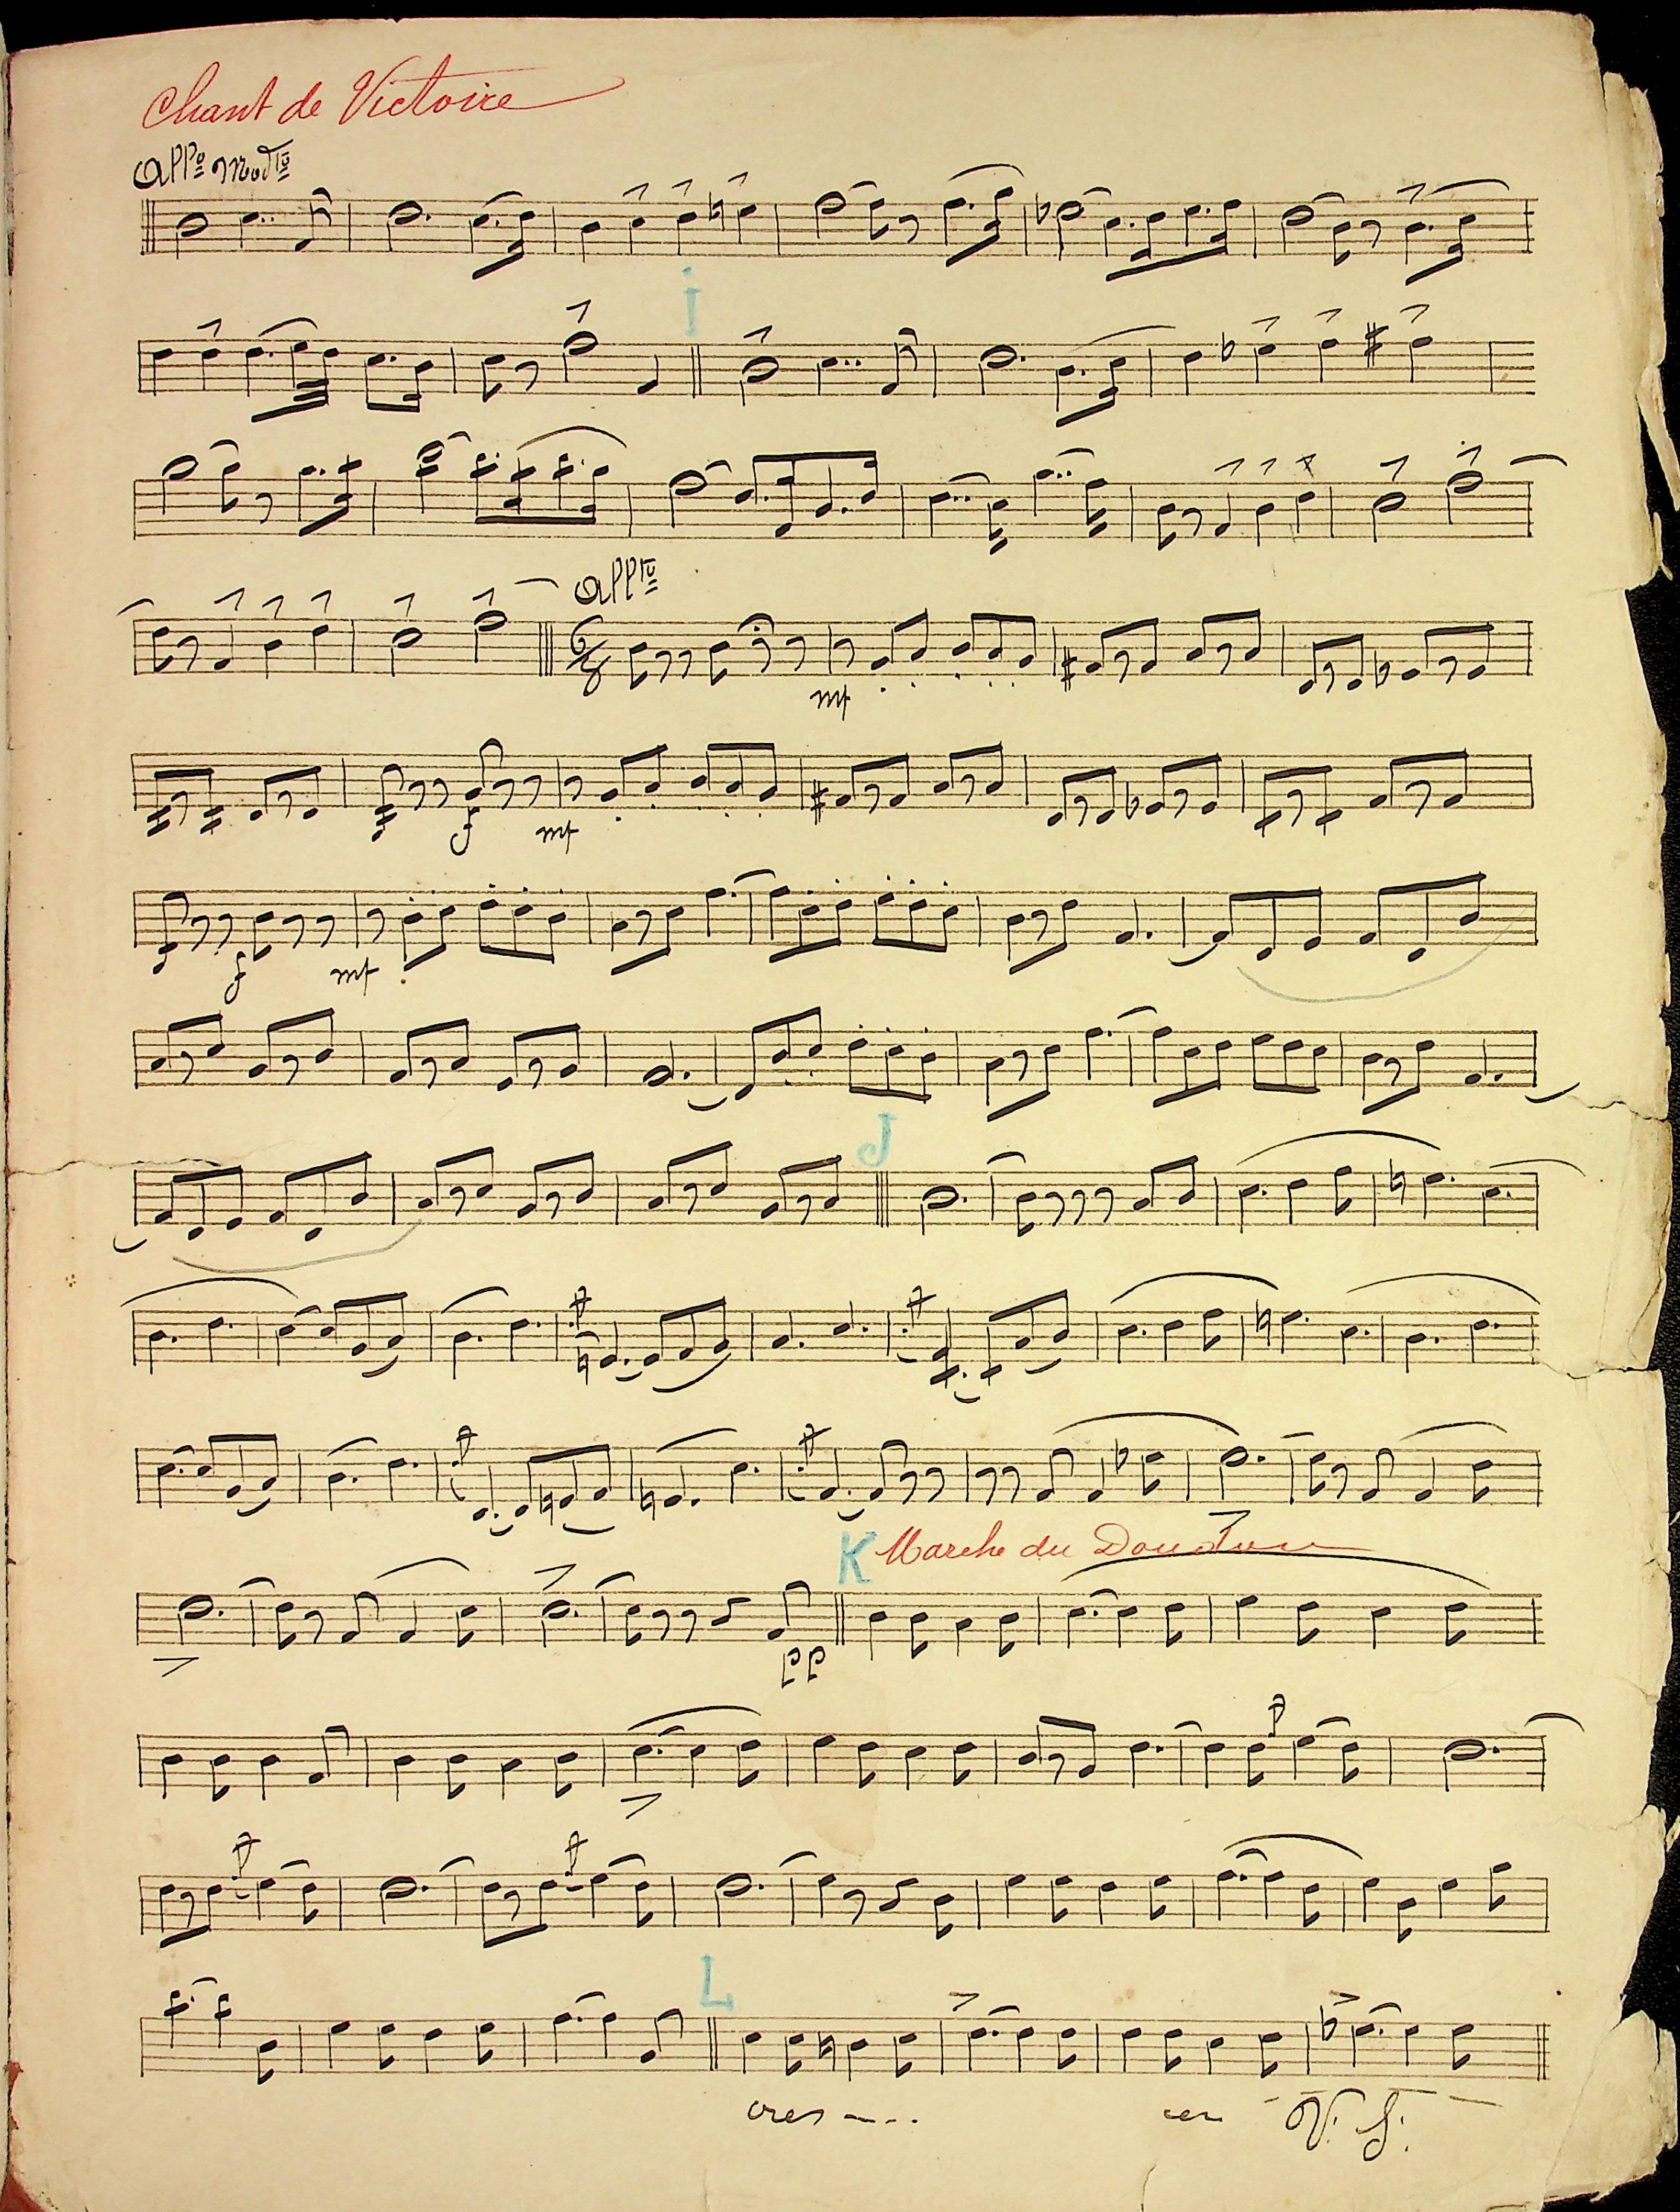 Chant de Victoire
All° Modto
I
Allto
6/8
mf
f mf
f mf
J
K Marche du Doudou
pp
L
cres - - - cen - - -
V. S.